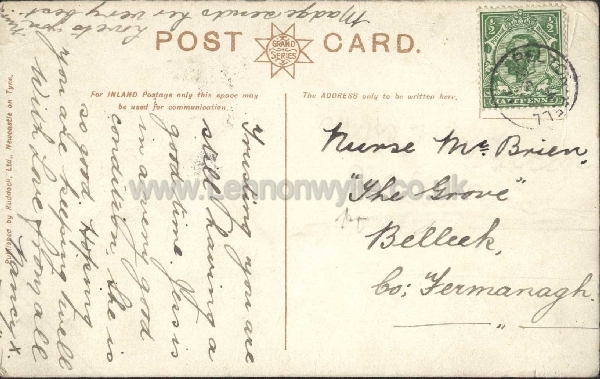 Madge sends her very best
love to you
POST CARD.
GRAND
SERIES
For INLAND Postage only this space may
be used for communication.
The ADDRESS only to be written here.
½ ½
HALFPENNY
Published by Ruddock, Ltd., Newcastle on Tyne.
www.Lennonwylie.co.uk
you are
still having a
good time Jess is
in a very good
condition, she is
so good. Hoping
you are keeping well
With Love from all
Nancy x.
Nurse McBrien,
"The Grove"
Belleek,
Co; Fermanagh.